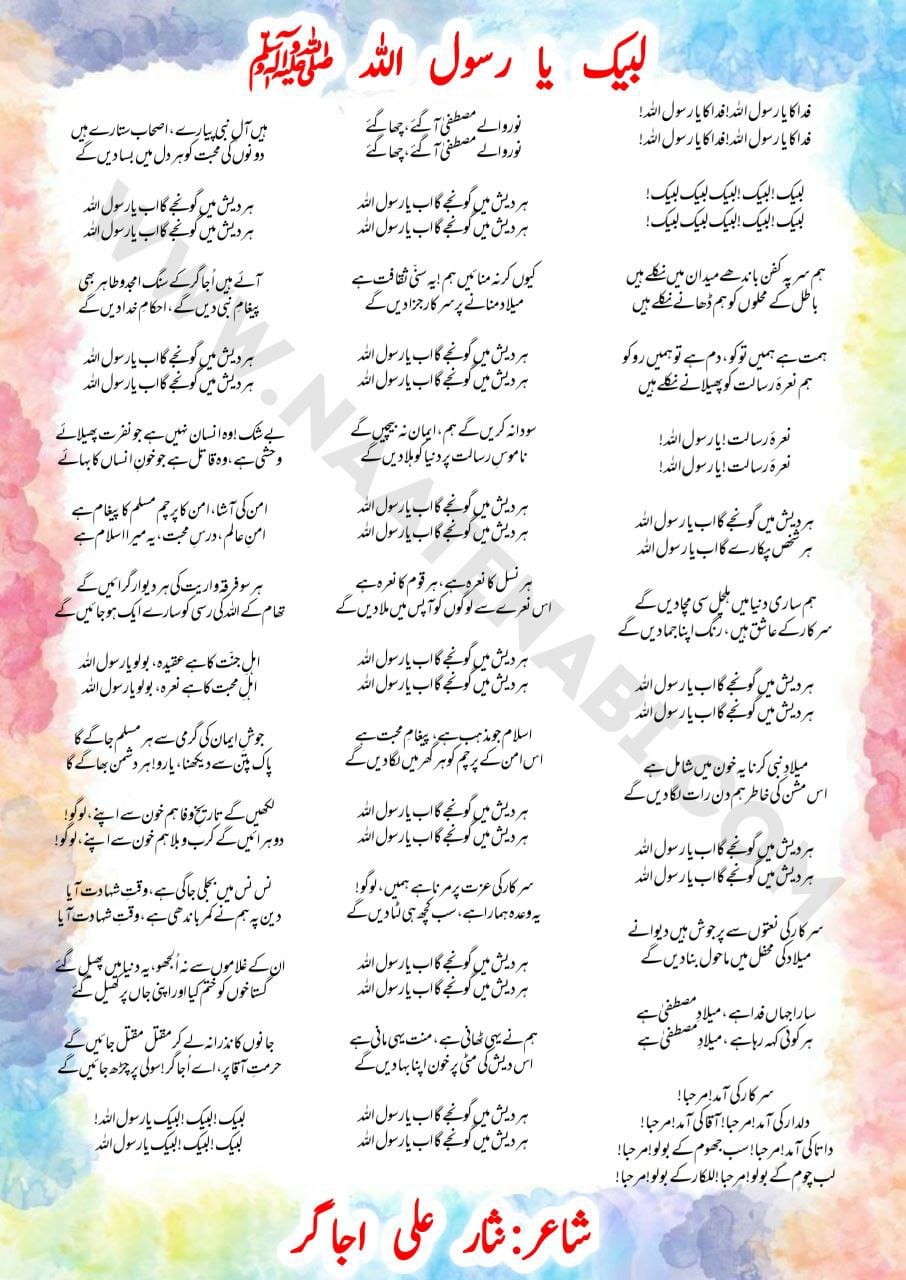 لبیک یا رسول اللہ ﷺ
فداکا یا رسول اللہ! فداکا یا رسول اللہ!
فداکا یا رسول اللہ! فداکا یا رسول اللہ!
لبیک! لبیک! لبیک لبیک لبیک!
لبیک! لبیک! لبیک لبیک لبیک!
ہم سر پہ کفن باندھے میدان میں نکلے ہیں
باطل کے محلوں کو ہم ڈھانے نکلے ہیں
ہمت ہے ہمیں ٹوکو، دم ہے تو ہمیں روکو
ہم نعرۂ رسالت کو پھیلانے نکلے ہیں
نعرۂ رسالت! یا رسول اللہ!
نعرۂ رسالت! یا رسول اللہ!
ہر دیش میں گونجے گا اب یا رسول اللہ
ہر شخص پکارے گا اب یا رسول اللہ
ہم ساری دنیا میں ہلچل سی مچا دیں گے
سرکار کے عاشق ہیں، رنگ اپنا جما دیں گے
ہر دیش میں گونجے گا اب یا رسول اللہ
ہر دیش میں گونجے گا اب یا رسول اللہ
میلادِ نبی کرنا یہ خون میں شامل ہے
اس مشن کی خاطر ہم دن رات لگا دیں گے
ہر دیش میں گونجے گا اب یا رسول اللہ
ہر دیش میں گونجے گا اب یا رسول اللہ
سرکار کی نعتوں سے پرجوش ہیں دیوانے
میلاد کی محفل میں ماحول بنا دیں گے
سارا جہاں فدا ہے، میلادِ مصطفیٰ ہے
ہر کوئی کہہ رہا ہے، میلادِ مصطفیٰ ہے
سرکار کی آمد! مرحبا!
دلدار کی آمد! مرحبا! آقا کی آمد! مرحبا!
داتا کی آمد! مرحبا! سب جھوم کے بولو! مرحبا!
لب چوم کے بولو! مرحبا! للکار کے بولو! مرحبا!
نور والے مصطفیٰ آ گئے، چھا گئے
نور والے مصطفیٰ آ گئے، چھا گئے
ہر دیش میں گونجے گا اب یا رسول اللہ
ہر دیش میں گونجے گا اب یا رسول اللہ
کیوں کر نہ منائیں ہم! یہ سنّی ثقافت ہے
میلاد منانے پر سرکار جزا دیں گے
ہر دیش میں گونجے گا اب یا رسول اللہ
ہر دیش میں گونجے گا اب یا رسول اللہ
سودا نہ کریں گے ہم، ایمان نہ بیچیں گے
ناموسِ رسالت پر دنیا کو ہلا دیں گے
ہر دیش میں گونجے گا اب یا رسول اللہ
ہر دیش میں گونجے گا اب یا رسول اللہ
ہر نسل کا نعرہ ہے، ہر قوم کا نعرہ ہے
اس نعرے سے لوگوں کو آپس میں ملا دیں گے
ہر دیش میں گونجے گا اب یا رسول اللہ
ہر دیش میں گونجے گا اب یا رسول اللہ
اسلام جو مذہب ہے، پیغامِ محبت ہے
اس امن کے پرچم کو ہر گھر میں لگا دیں گے
ہر دیش میں گونجے گا اب یا رسول اللہ
ہر دیش میں گونجے گا اب یا رسول اللہ
سرکار کی عزت پر مرنا ہے ہمیں، لوگو!
یہ وعدہ ہمارا ہے، سب کچھ ہی لٹا دیں گے
ہر دیش میں گونجے گا اب یا رسول اللہ
ہر دیش میں گونجے گا اب یا رسول اللہ
ہم نے یہی ٹھانی ہے، منت یہی مانی ہے
اس دیش کی مٹی پر خون اپنا بہا دیں گے
ہر دیش میں گونجے گا اب یا رسول اللہ
ہر دیش میں گونجے گا اب یا رسول اللہ
ہیں آلِ نبی پیارے، اصحاب ستارے ہیں
دونوں کی محبت کو ہر دل میں بسا دیں گے
ہر دیش میں گونجے گا اب یا رسول اللہ
ہر دیش میں گونجے گا اب یا رسول اللہ
آئے ہیں اُجاگر کے سنگ امجد و طاہر بھی
پیغامِ نبی دیں گے، احکامِ خدا دیں گے
ہر دیش میں گونجے گا اب یا رسول اللہ
ہر دیش میں گونجے گا اب یا رسول اللہ
بے شک! وہ انسان نہیں ہے جو نفرت پھیلائے
وحشی ہے، وہ قاتل ہے جو خونِ انساں کا بہائے
امن کی آشا، امن کا پرچم مسلم کا پیغام ہے
امنِ عالم، درسِ محبت، یہ میرا اسلام ہے
ہر سو فرقہ واریت کی ہر دیوار گرائیں گے
تھام کے اللہ کی رسی کو سارے ایک ہو جائیں گے
اہلِ جنّت کا ہے عقیدہ، بولو یا رسول اللہ
اہلِ محبت کا ہے نعرہ، بولو یا رسول اللہ
جوشِ ایمان کی گرمی سے ہر مسلم جاگے گا
پاک پتن سے دیکھنا، یارو! ہر دشمن بھاگے گا
لکھیں گے تاریخِ وفا ہم خون سے اپنے، لوگو!
دوہرائیں گے کرب و بلا ہم خون سے اپنے، لوگو!
نس نس میں بجلی جاگی ہے، وقتِ شہادت آیا
دین پہ ہم نے کمر باندھی ہے، وقتِ شہادت آیا
ان کے غلاموں سے نہ اُلجھو، یہ دنیا میں پھیل گئے
گستاخوں کو ختم کیا اور اپنی جاں پر کھیل گئے
جانوں کا نذرانہ لے کر مقتل مقتل جائیں گے
حرمتِ آقا پر، اے اُجاگر! سولی پر چڑھ جائیں گے
لبیک! لبیک! لبیک یا رسول اللہ!
لبیک! لبیک! لبیک یا رسول اللہ
شاعر: نثار علی اجاگر
WWW.NAATENABI.COM